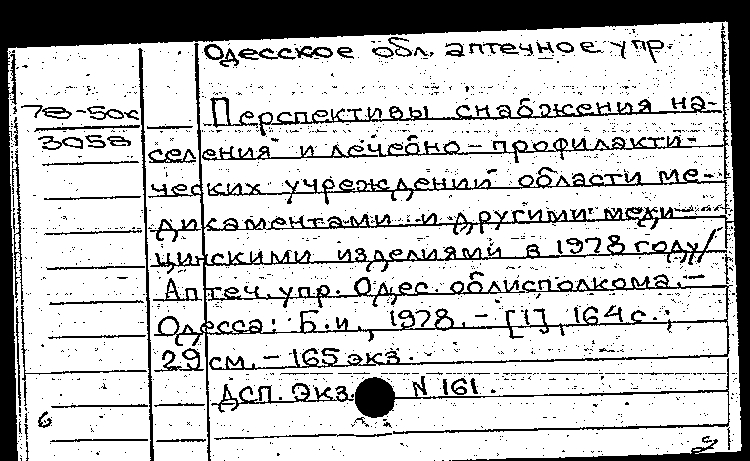 Одесское обл. аптечное упр.
78-50с
3058
Перспективы снабжения на-
селения и лечебно-профилакти-
ческих учреждений области ме-
дикаментами и другими меди-
цинскими изделиями в 1978 году/
Аптеч. упр. Одес. облисполкома. –
Одесса: Б.и., 1978. – [1], 164 с.;
29 см. – 165 экз.
ДСП. Экз. N 161.
6